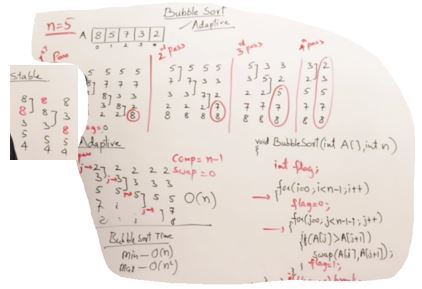 Bubble Sort
Adaptive
n=5
A 8 5 7 3 2
0 1 2 3 4
1st pass
2nd pass
3rd pass
4th pass
5 5 5 5
7 7 7
3 3
2 2 2 8
5 5 5 5
7 7 3 3
3 3 7 2
2 2 2 7
8 8 8 8
5 3 3
3 5 2
2 2 5
7 7 7
8 8 8
3 2
2 3
5 5
7 7
8 8
Stable
8 8 8
8 8 3
3 3 8
5 5 5
4 4 4
flag=0
Adaptive
pass
2 2 2 2
3 3 3 3
5 5 5
7
Comp = n-1
Swap = 0
O(n)
Bubble Sort Time
Min — O(n)
Max — O(n²)
void BubbleSort(int A[],int n)
{
int flag;
for(i=0;i<n-1;i++)
{
flag=0;
for(j=0;j<n-1-i;j++)
{
if(A[j]>A[j+1])
swap(A[j],A[j+1]);
flag=1;